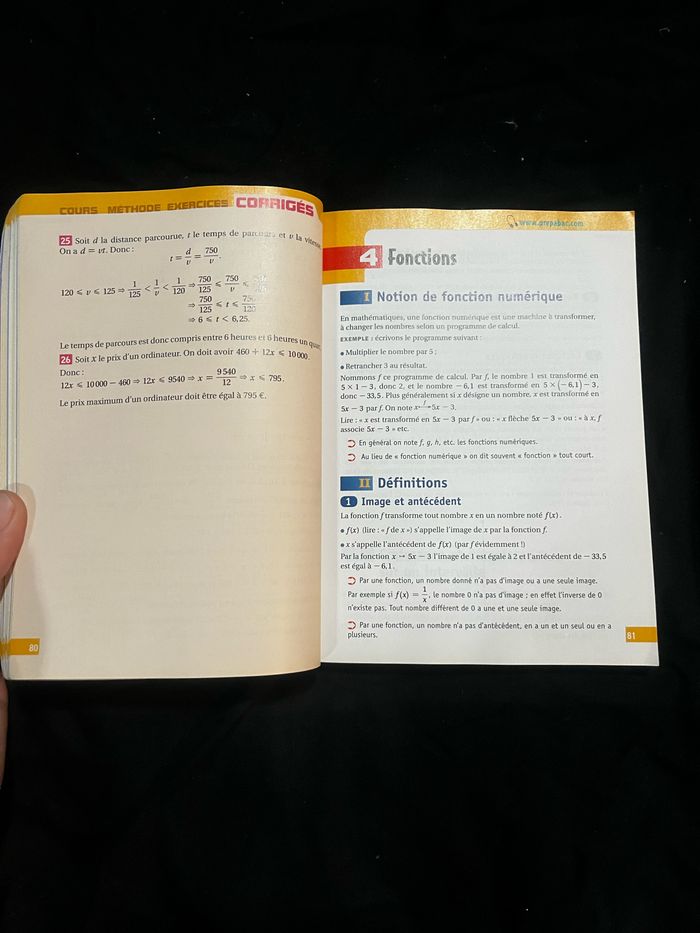 COURS MÉTHODE EXERCICES CORRIGÉS
25 Soit d la distance parcourue, t le temps de parcours et v la vitesse.
On a d = vt. Donc :
t = d/v = 750/v.
120 ⩽ v ⩽ 125 ⇒ 1/125 < 1/v < 1/120 ⇒ 750/125 ⩽ 750/v ⩽
⇒ 750/125 ⩽ t ⩽ 750/120
⇒ 6 ⩽ t < 6,25.
Le temps de parcours est donc compris entre 6 heures et 6 heures un quart.
26 Soit x le prix d'un ordinateur. On doit avoir 460 + 12x ⩽ 10 000.
Donc :
12x ⩽ 10 000 − 460 ⇒ 12x ⩽ 9540 ⇒ x = 9 540/12 ⇒ x ⩽ 795.
Le prix maximum d'un ordinateur doit être égal à 795 €.
80
www.prepabac.com
4 Fonctions
I Notion de fonction numérique
En mathématiques, une fonction numérique est une machine à transformer,
à changer les nombres selon un programme de calcul.
EXEMPLE : écrivons le programme suivant :
• Multiplier le nombre par 5 ;
• Retrancher 3 au résultat.
Nommons f ce programme de calcul. Par f, le nombre 1 est transformé en
5 × 1 − 3, donc 2, et le nombre − 6,1 est transformé en 5 × (− 6,1) − 3,
donc − 33,5. Plus généralement si x désigne un nombre, x est transformé en
5x − 3 par f. On note x f→ 5x − 3.
Lire : « x est transformé en 5x − 3 par f » ou : « x flèche 5x − 3 » ou : « à x, f
associe 5x − 3 » etc.
En général on note f, g, h, etc. les fonctions numériques.
Au lieu de « fonction numérique » on dit souvent « fonction » tout court.
II Définitions
1 Image et antécédent
La fonction f transforme tout nombre x en un nombre noté f(x).
• f(x) (lire : « f de x ») s'appelle l'image de x par la fonction f.
• x s'appelle l'antécédent de f(x) (par f évidemment !)
Par la fonction x → 5x − 3 l'image de 1 est égale à 2 et l'antécédent de − 33,5
est égal à − 6,1.
Par une fonction, un nombre donné n'a pas d'image ou a une seule image.
Par exemple si f(x) = 1/x, le nombre 0 n'a pas d'image ; en effet l'inverse de 0
n'existe pas. Tout nombre différent de 0 a une et une seule image.
Par une fonction, un nombre n'a pas d'antécédent, en a un et un seul ou en a
plusieurs.
81